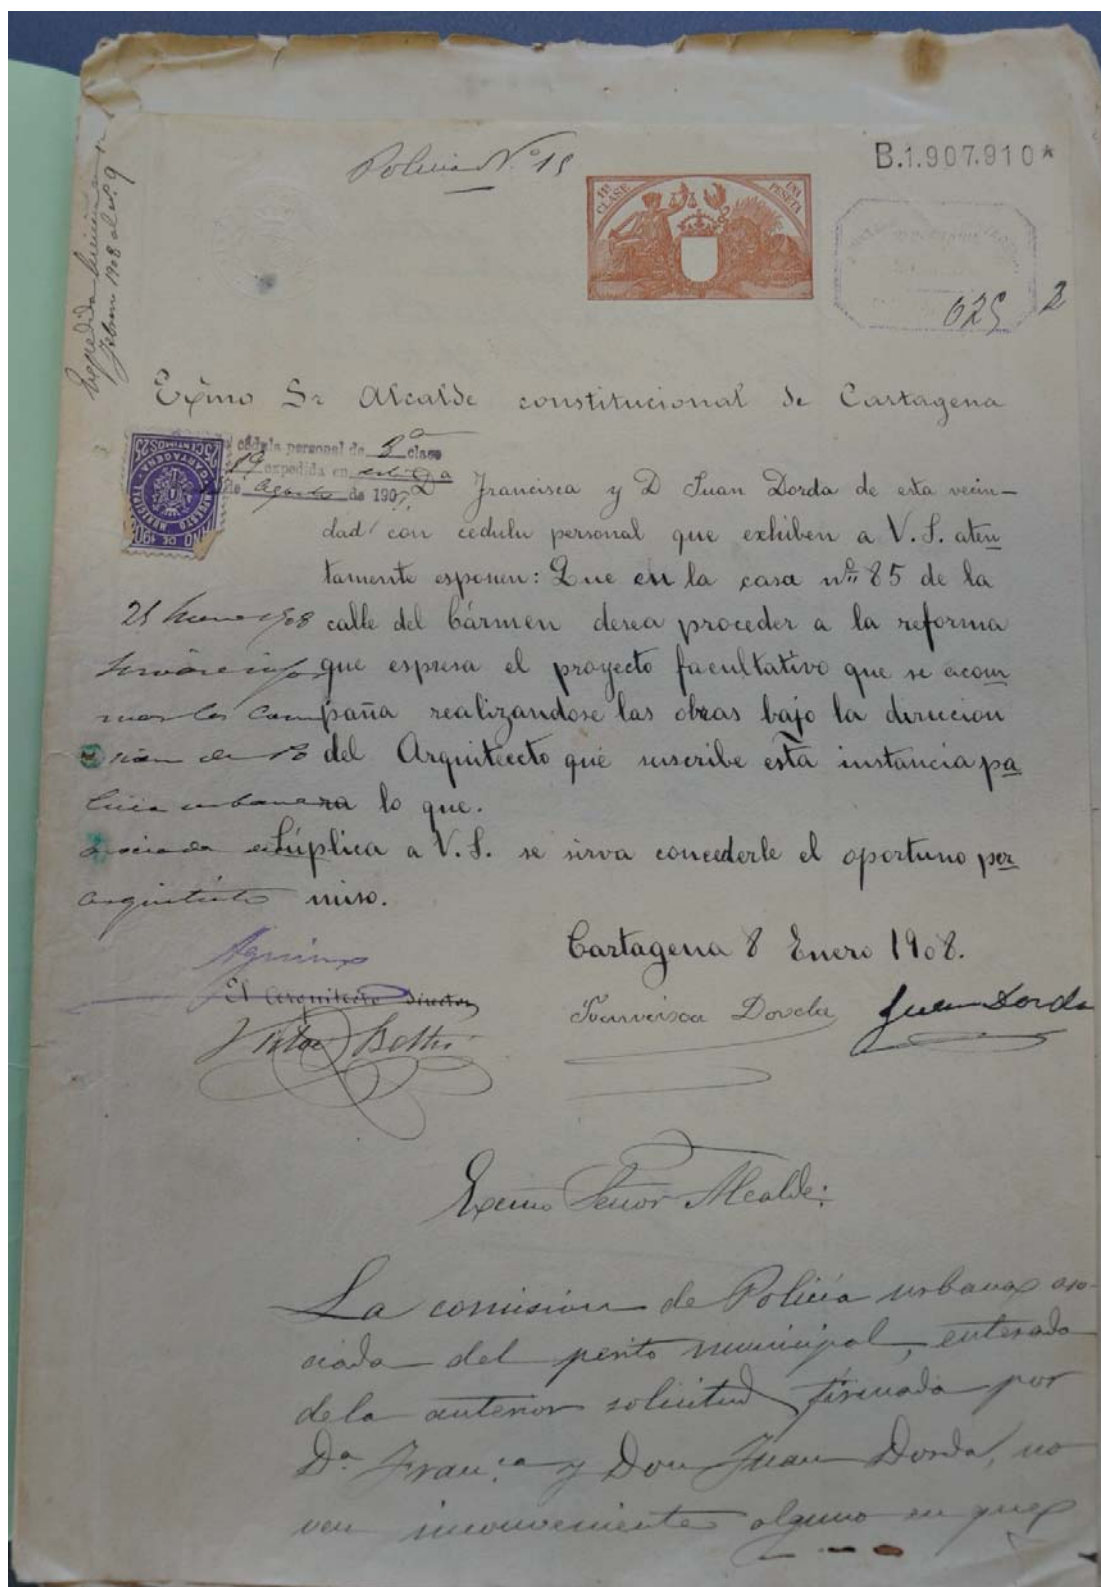 Policia N.º 15
11ª CLASE
UNA PESETA
B.1.907.910*
025 2
Expedida licencia en
febrero 1908 al nº. 9
Exṁo Sr Alcalde constitucional de Cartagena
25 CENTIMOS 25
CARTAGENA
IMPUESTO MUNICIPAL
AÑO DE 190
cédula personal de 8ª clase
89 expedida en esta
de Agosto de 1907
Dª Francisca y D Juan Dorda de esta vecin-
dad con cedula personal que exhiben a V. S. aten
tamente esponen: Que en la casa nº 85 de la
calle del Cármen desea proceder a la reforma
que espresa el proyecto facultativo que se acom
paña realizandose las obras bajo la direccion
del Arquitecto que suscribe esta instancia pa
ra lo que.
Súplica a V. S. se sirva concederle el oportuno per
miso.
21 Enero 1908
Sirvase infor
mar la Comi
sión de Po
licia urbana
asociada del
arquitecto
Cartagena 8 Enero 1908.
El Arquitecto Director
Victor Beltri
Francisca Dorda
Juan Dorda
Exċmo Señor Alcalde:
La comisión de Policía urbana aso-
ciada del perito municipal, enterada
de la anterior solicitud firmada por
Dª Fran.ca y Don Juan Dorda, no
ven inconveniente alguno en que